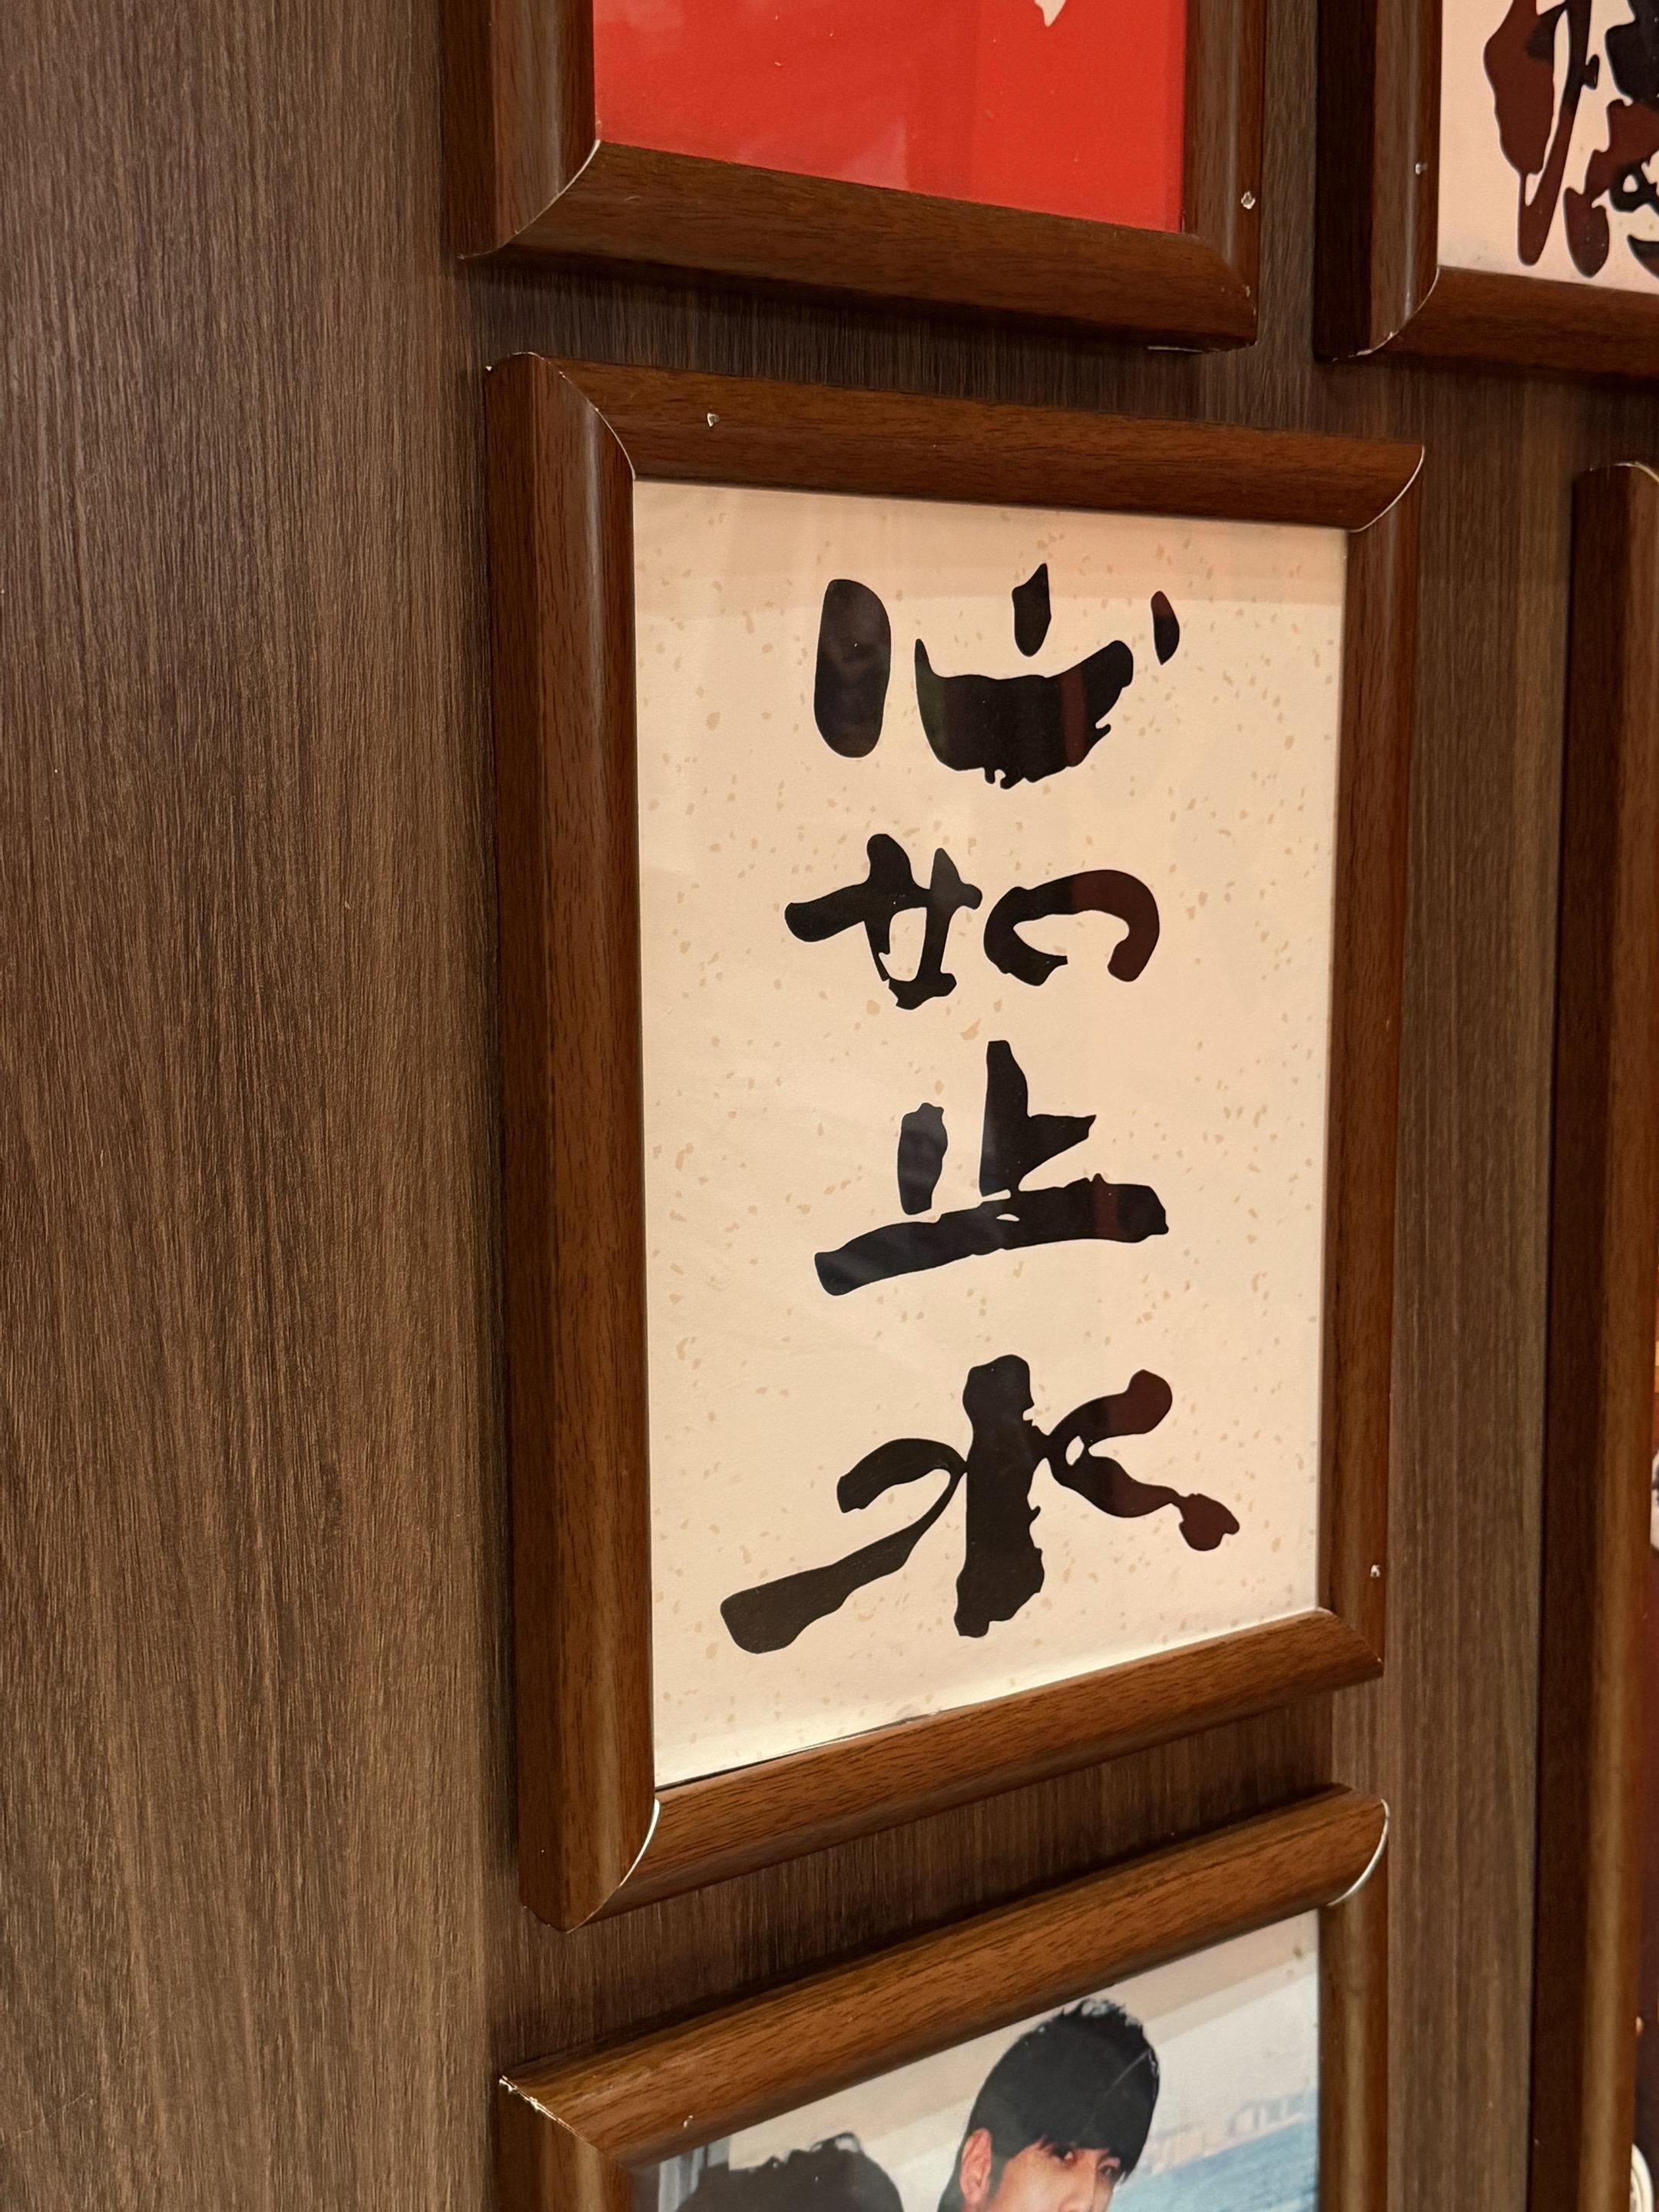 心如止水